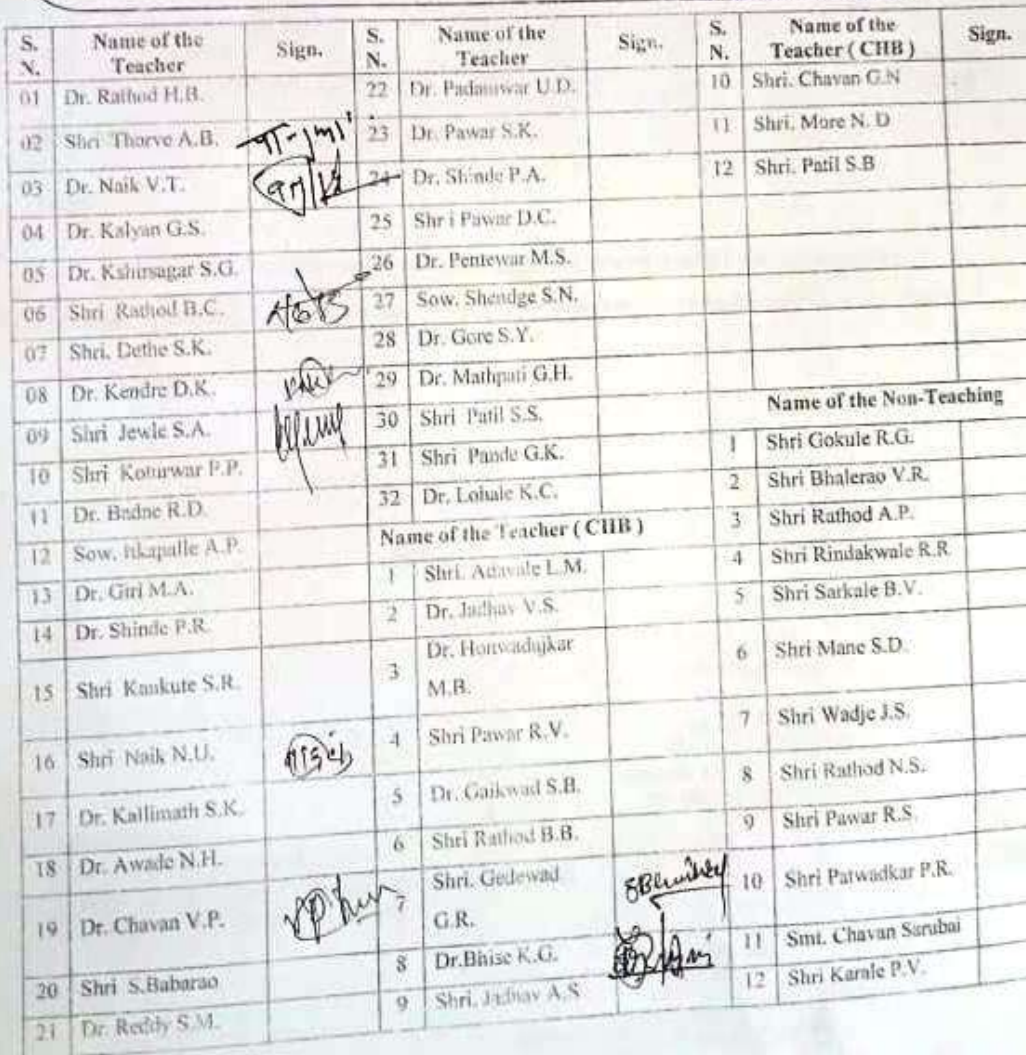 S. N. Name of the Teacher Sign.
01 Dr. Rathod H.B.
02 Shri Thorve A.B.
03 Dr. Naik V.T.
04 Dr. Kalyan G.S.
05 Dr. Kshirsagar S.G.
06 Shri Rathod B.C.
07 Shri. Dethe S.K.
08 Dr. Kendre D.K.
09 Shri Jewle S.A.
10 Shri Koturwar P.P.
11 Dr. Badne R.D.
12 Sow. Iskapalle A.P.
13 Dr. Giri M.A.
14 Dr. Shinde P.R.
15 Shri Kankute S.R.
16 Shri Naik N.U.
17 Dr. Kallimath S.K.
18 Dr. Awade N.H.
19 Dr. Chavan V.P.
20 Shri S.Babarao
21 Dr. Reddy S.M.
S. N. Name of the Teacher Sign.
22 Dr. Padamwar U.D.
23 Dr. Pawar S.K.
24 Dr. Shinde P.A.
25 Shr i Pawar D.C.
26 Dr. Pentewar M.S.
27 Sow. Shendge S.N.
28 Dr. Gore S.Y.
29 Dr. Mathpati G.H.
30 Shri Patil S.S.
31 Shri Pande G.K.
32 Dr. Lohale K.C.
Name of the Teacher ( CHB )
1 Shri. Adavale L.M.
2 Dr. Jadhav V.S.
3 Dr. Honwadujkar
M.B.
4 Shri Pawar R.V.
5 Dr. Gaikwad S.B.
6 Shri Rathod B.B.
7 Shri. Gedewad
G.R.
8 Dr.Bhise K.G.
9 Shri. Jadhav A.S
S. N. Name of the Teacher ( CHB ) Sign.
10 Shri. Chavan G.N
11 Shri. More N. D
12 Shri. Patil S.B
Name of the Non-Teaching
1 Shri Gokule R.G.
2 Shri Bhalerao V.R.
3 Shri Rathod A.P.
4 Shri Rindakwale R.R
5 Shri Sarkale B.V.
6 Shri Mane S.D.
7 Shri Wadje J.S.
8 Shri Rathod N.S.
9 Shri Pawar R.S.
10 Shri Patwadkar P.R.
11 Smt. Chavan Sarubai
12 Shri Karale P.V.